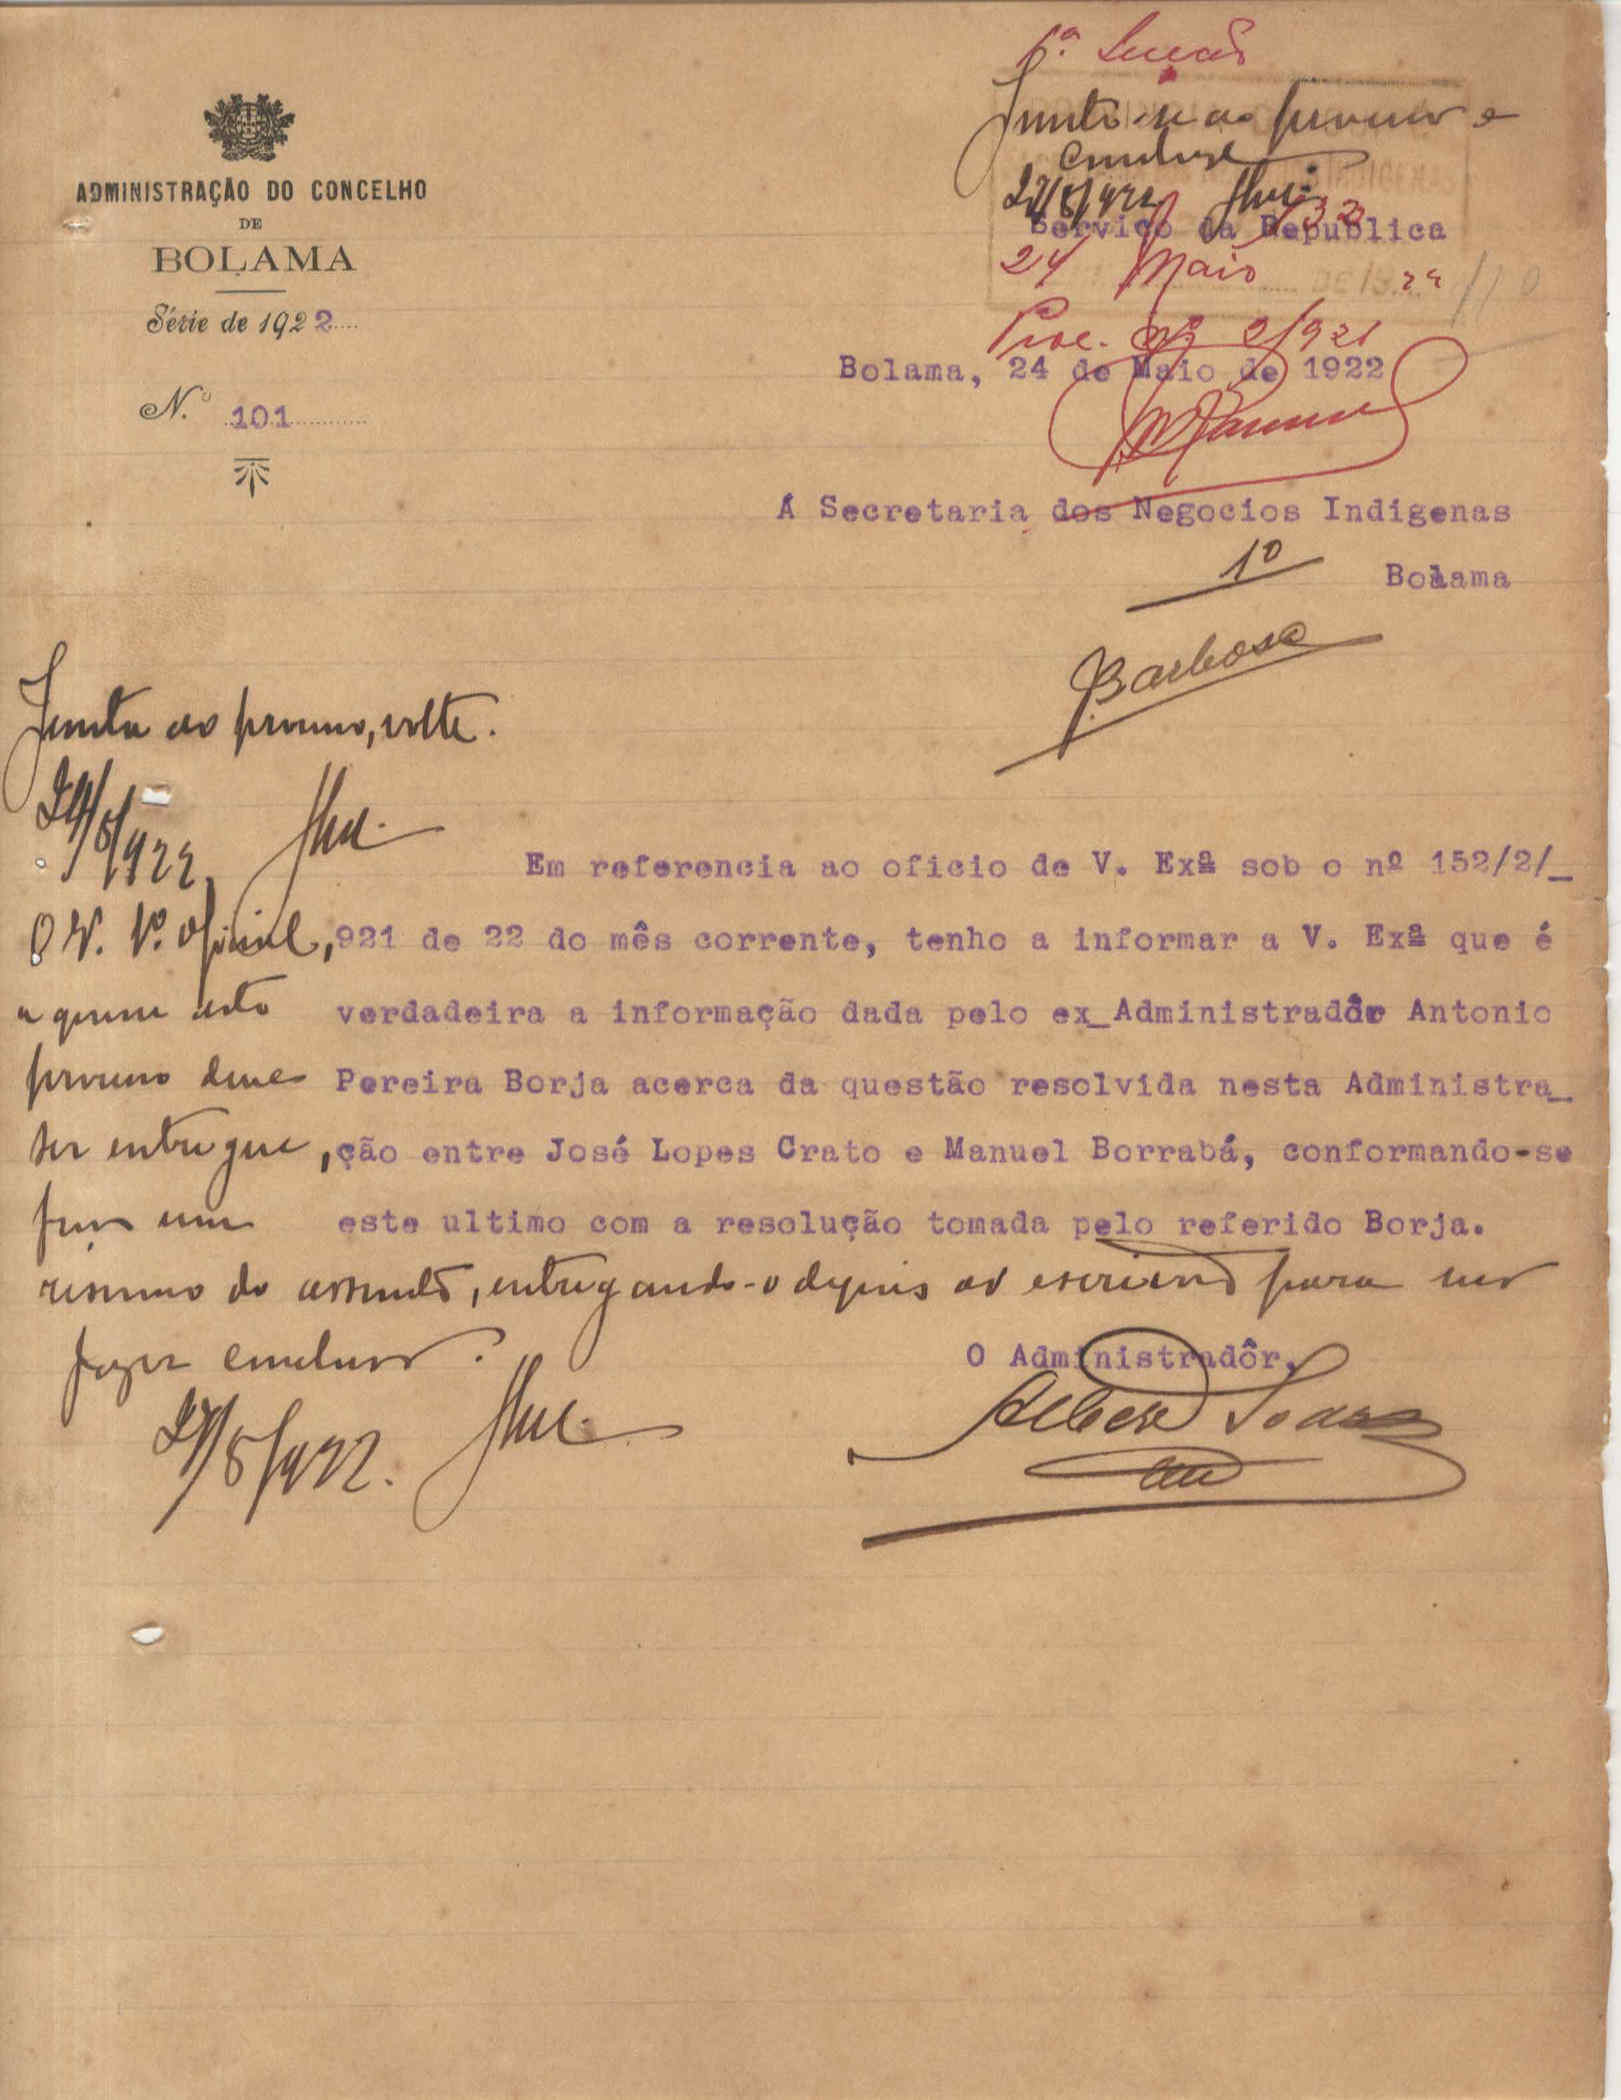 ADMINISTRAÇÃO DO CONCELHO
DE
BOLAMA
Série de 1922
N.º 101
1.ª Secção
Junte-se ao processo e
conclusos
27/5/922
Serviço da Republica
24 Maio 22
Proc. nº 2/921
Bolama, 24 de Maio de 1922
Á Secretaria dos Negocios Indigenas
Bolama
1º
Barbosa
Junta ao processo, volte.
24/5/922
Em referencia ao oficio de V. Exª sob o nº 152/2/_
921 de 22 do mês corrente, tenho a informar a V. Exª que é
verdadeira a informação dada pelo ex_Administradôr Antonio
Pereira Borja acerca da questão resolvida nesta Administra_
ção entre José Lopes Crato e Manuel Borrabá, conformando-se
este ultimo com a resolução tomada pelo referido Borja.
O Administradôr,
O Sr. 1º. oficial,
a quem este
processo deve
ser entregue,
faça um
resumo do assunto, entregando-o depois ao escrivão para
fazer concluso.
27/5/922.